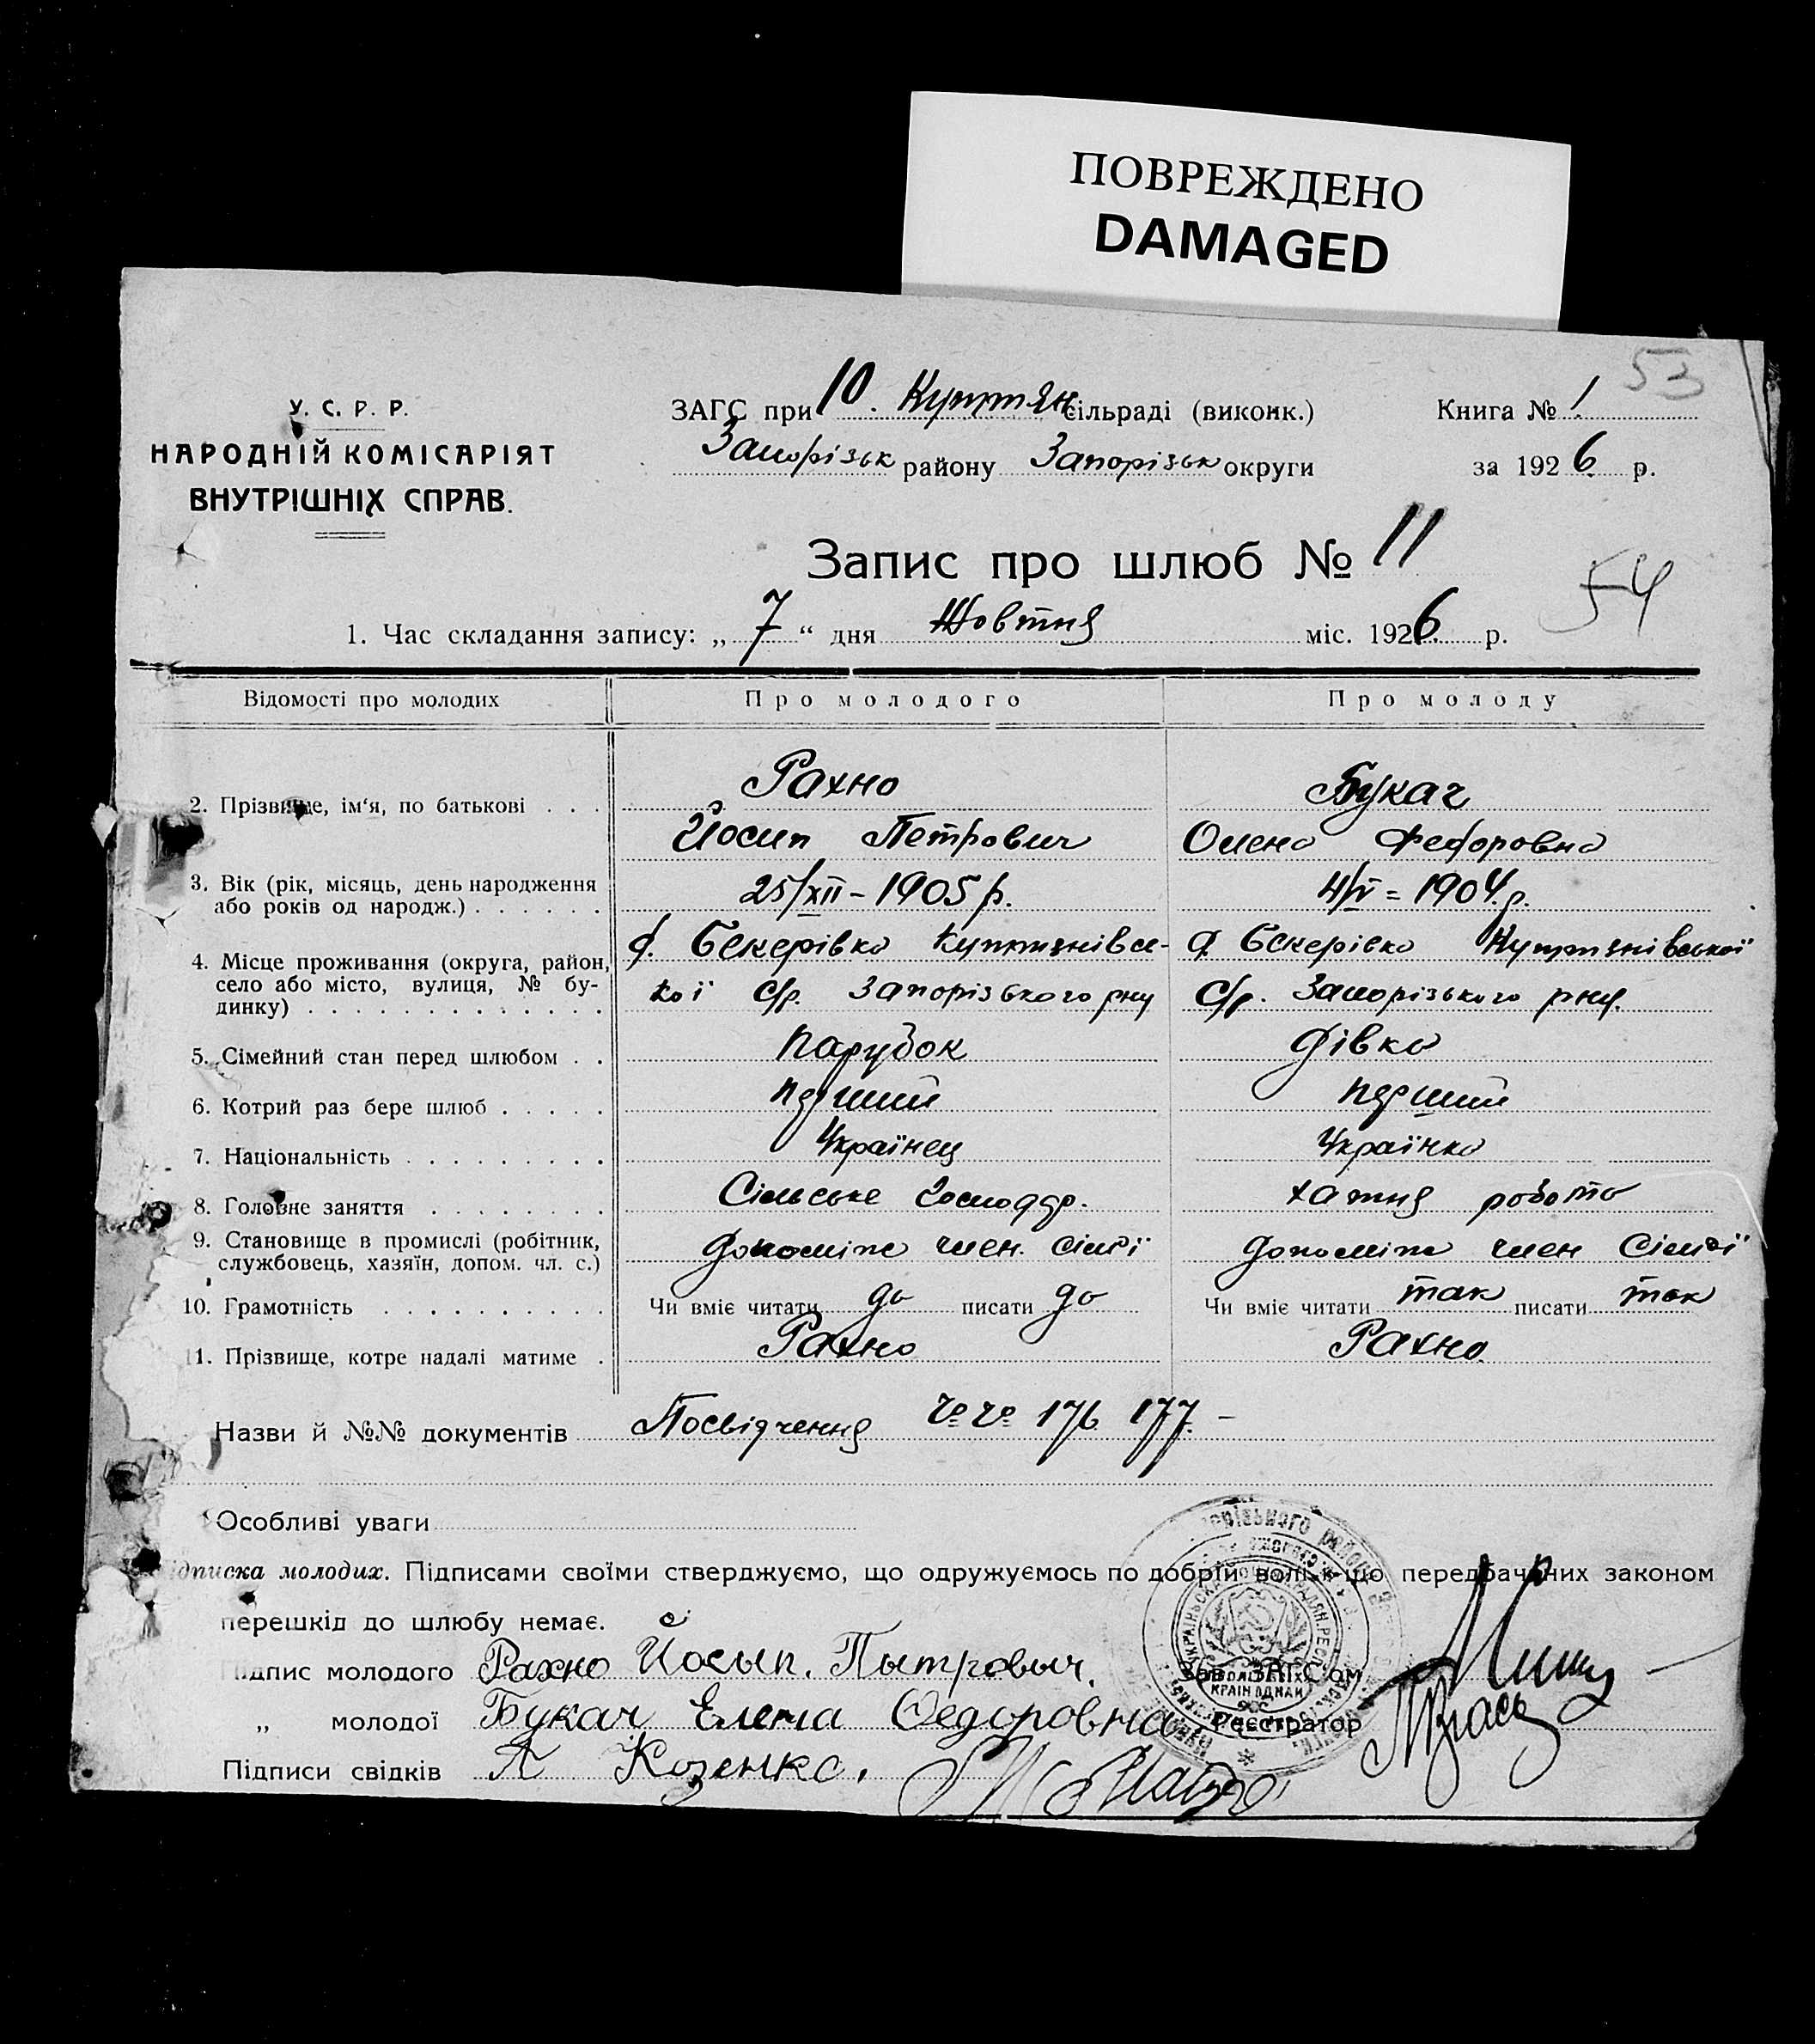 ПОВРЕЖДЕНО
DAMAGED
53
У. С. Р. Р.
НАРОДНІЙ КОМІСАРІЯТ
ВНУТРІШНІХ СПРАВ.
ЗАГС при 10. Куптян сільраді (виконк.)
Запорізьк району Запорізьк округи
Книга № 1
за 1926 р.
Запис про шлюб № 11
54
1. Час складання запису: „ 7 “ дня Жовтня міс. 1926 р.
Відомості про молодих Про молодого Про молоду
2. Прізвище, ім'я, по батькові . . . Рахно Букач
Йосип Петрович Олена Федоровна
3. Вік (рік, місяць, день народження
або років од народж.) . . . . . . 25/XII – 1905 р. 4/IV = 1904 р.
4. Місце проживання (округа, район, с. Бекерівка Куптянівсь- с. Бекерівка Куптянівської
село або місто, вулиця, № бу-
динку) . . . . . . . . . . . . . кої с/р. Запорізького рну с/р. Запорізького рну.
5. Сімейний стан перед шлюбом . . Парубок Дівка
6. Котрий раз бере шлюб . . . . . перший перший
7. Національність . . . . . . . . . Українец Українка
8. Головне заняття . . . . . . . . Сільське Господар. хатня робота
9. Становище в промислі (робітник,
службовець, хазяїн, допом. чл. с.) член. сімʼї член Сімʼї
10. Грамотність . . . . . . . . . . Чи вміє читати да писати да Чи вміє читати так писати так
11. Прізвище, котре надалі матиме . Рахно Рахно
Назви й №№ документів Посвідчення №№ 176 177. –
Особливі уваги
Підписка молодих. Підписами своїми стверджуємо, що одружуємось по добрій волі й що передбачених законом
перешкід до шлюбу немає.
Підпис молодого Рахно Йосып. Пытровыч
Зав. ЗАГС'ом
„ молодої Букач Елена Федоровна
Реєстратор
Підписи свідків Козенко.
КРАЇН ЄДНАЙ